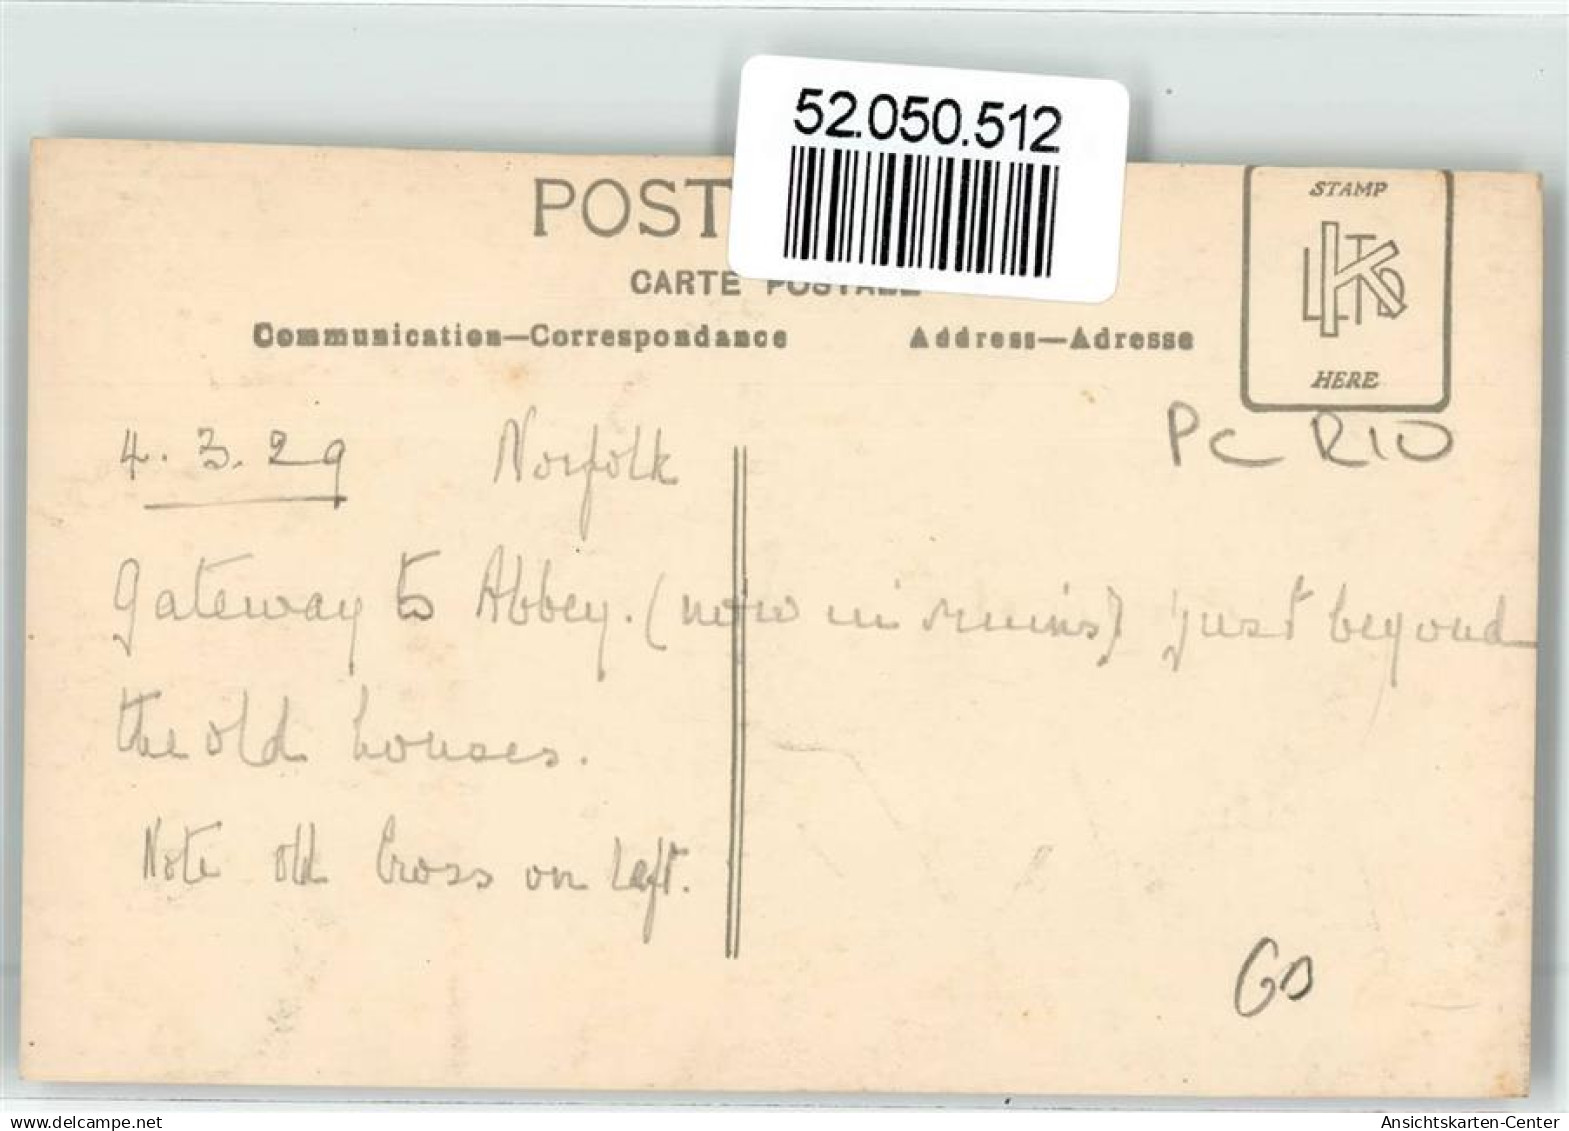 52.050.512
POST
CARTE POSTALE
Communication—Correspondance
Address—Adresse
STAMP
K LTD
HERE
PC R10
4.3.29 Norfolk
Gateway to Abbey. (now in ruins) just beyond
the old houses.
Note old Cross on left.
delcampe.net
Ansichtskarten-Center